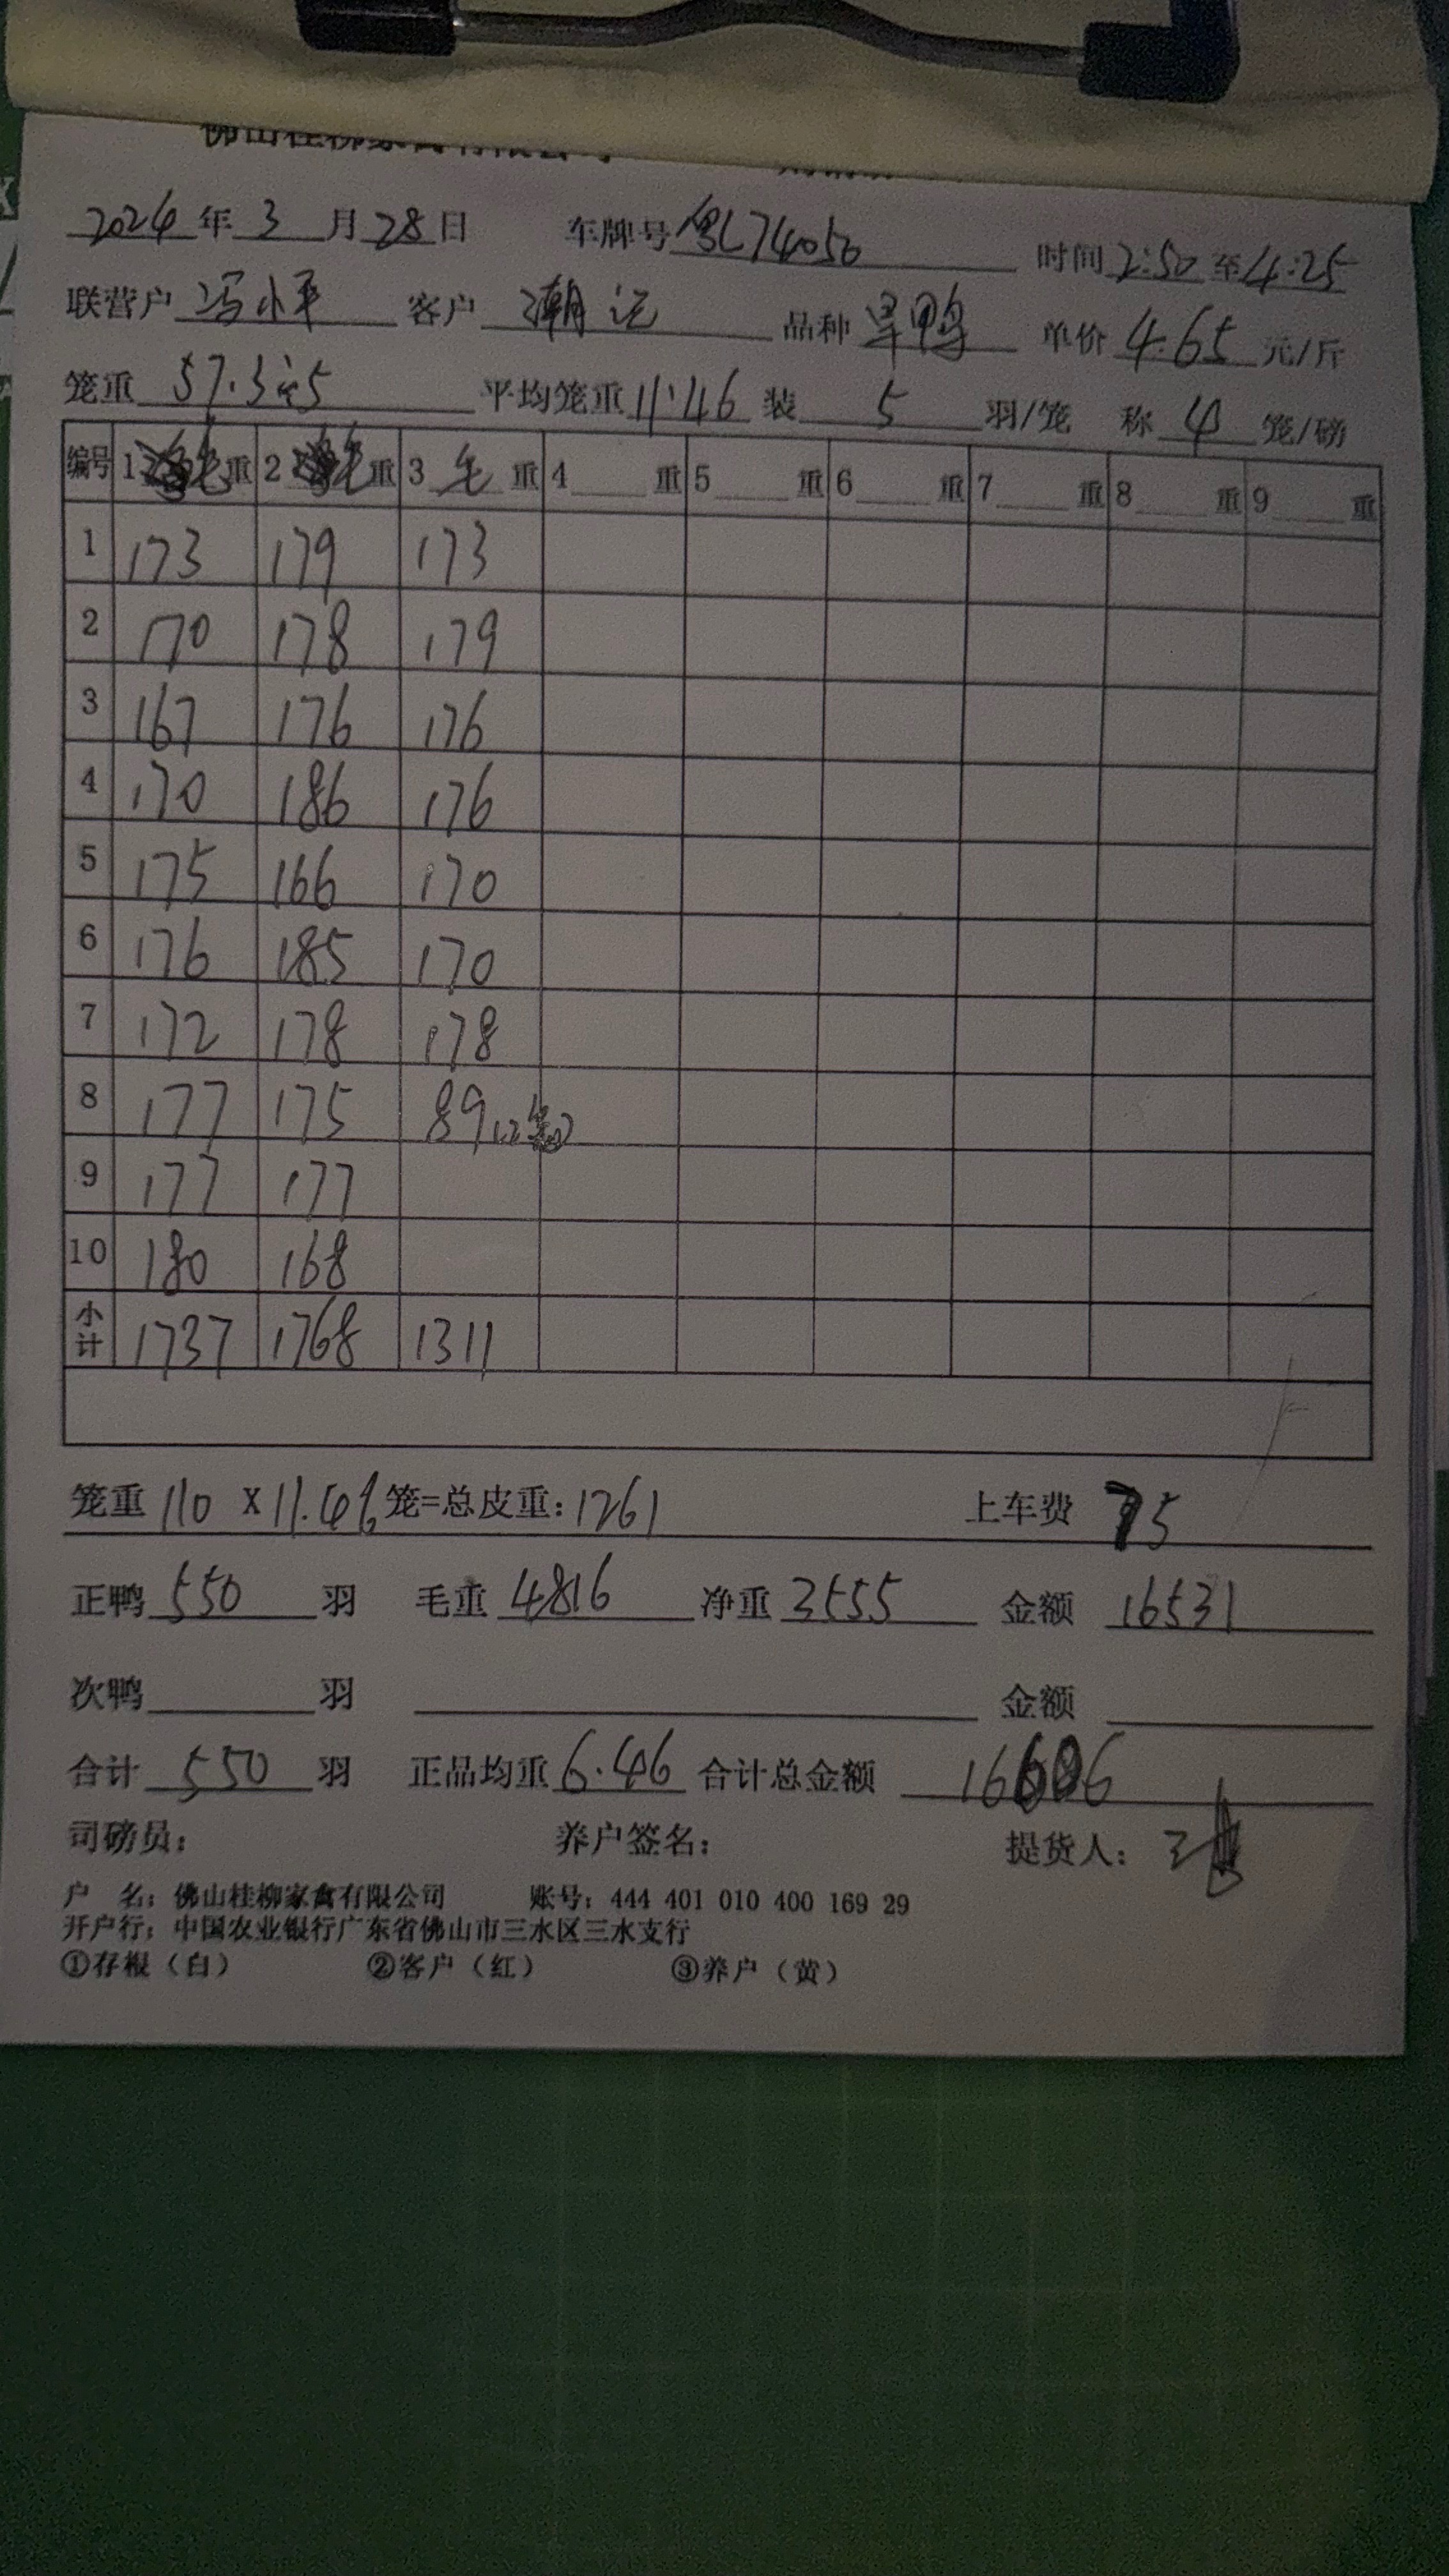 佛山桂柳家禽有限公司
2024年3月28日 车牌号粤L74050 时间2:50至4:25
联营户冯小平 客户潮记 品种旱鸭 单价4.65元/斤
笼重57.3÷5 平均笼重11.46装5羽/笼 称4笼/磅
编号 1毛重 2毛重 3毛重 4重 5重 6重 7重 8重 9重
1 173 179 173
2 170 178 179
3 167 176 176
4 170 186 176
5 175 166 170
6 176 185 170
7 172 178 178
8 177 175 89(2笼)
9 177 177
10 180 168
小计 1737 1768 1311
笼重110X11.46笼=总皮重:1261 上车费75
正鸭550羽 毛重4816 净重3555 金额16531
次鸭羽 金额
合计550羽 正品均重6.46 合计总金额16606
司磅员: 养户签名: 提货人:
户 名:佛山桂柳家禽有限公司 账号:444 401 010 400 169 29
开户行:中国农业银行广东省佛山市三水区三水支行
①存根(白) ②客户(红) ③养户(黄)